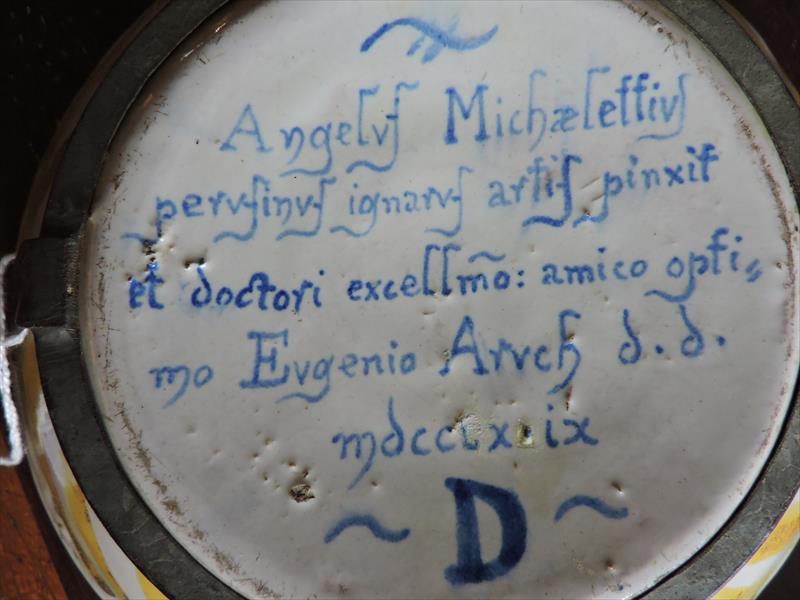 Angelus Michælettius
perusinus ignarus artis pinxit
et doctori excellm̃o: amico opti=
mo Eugenio Aruch d. d.
D